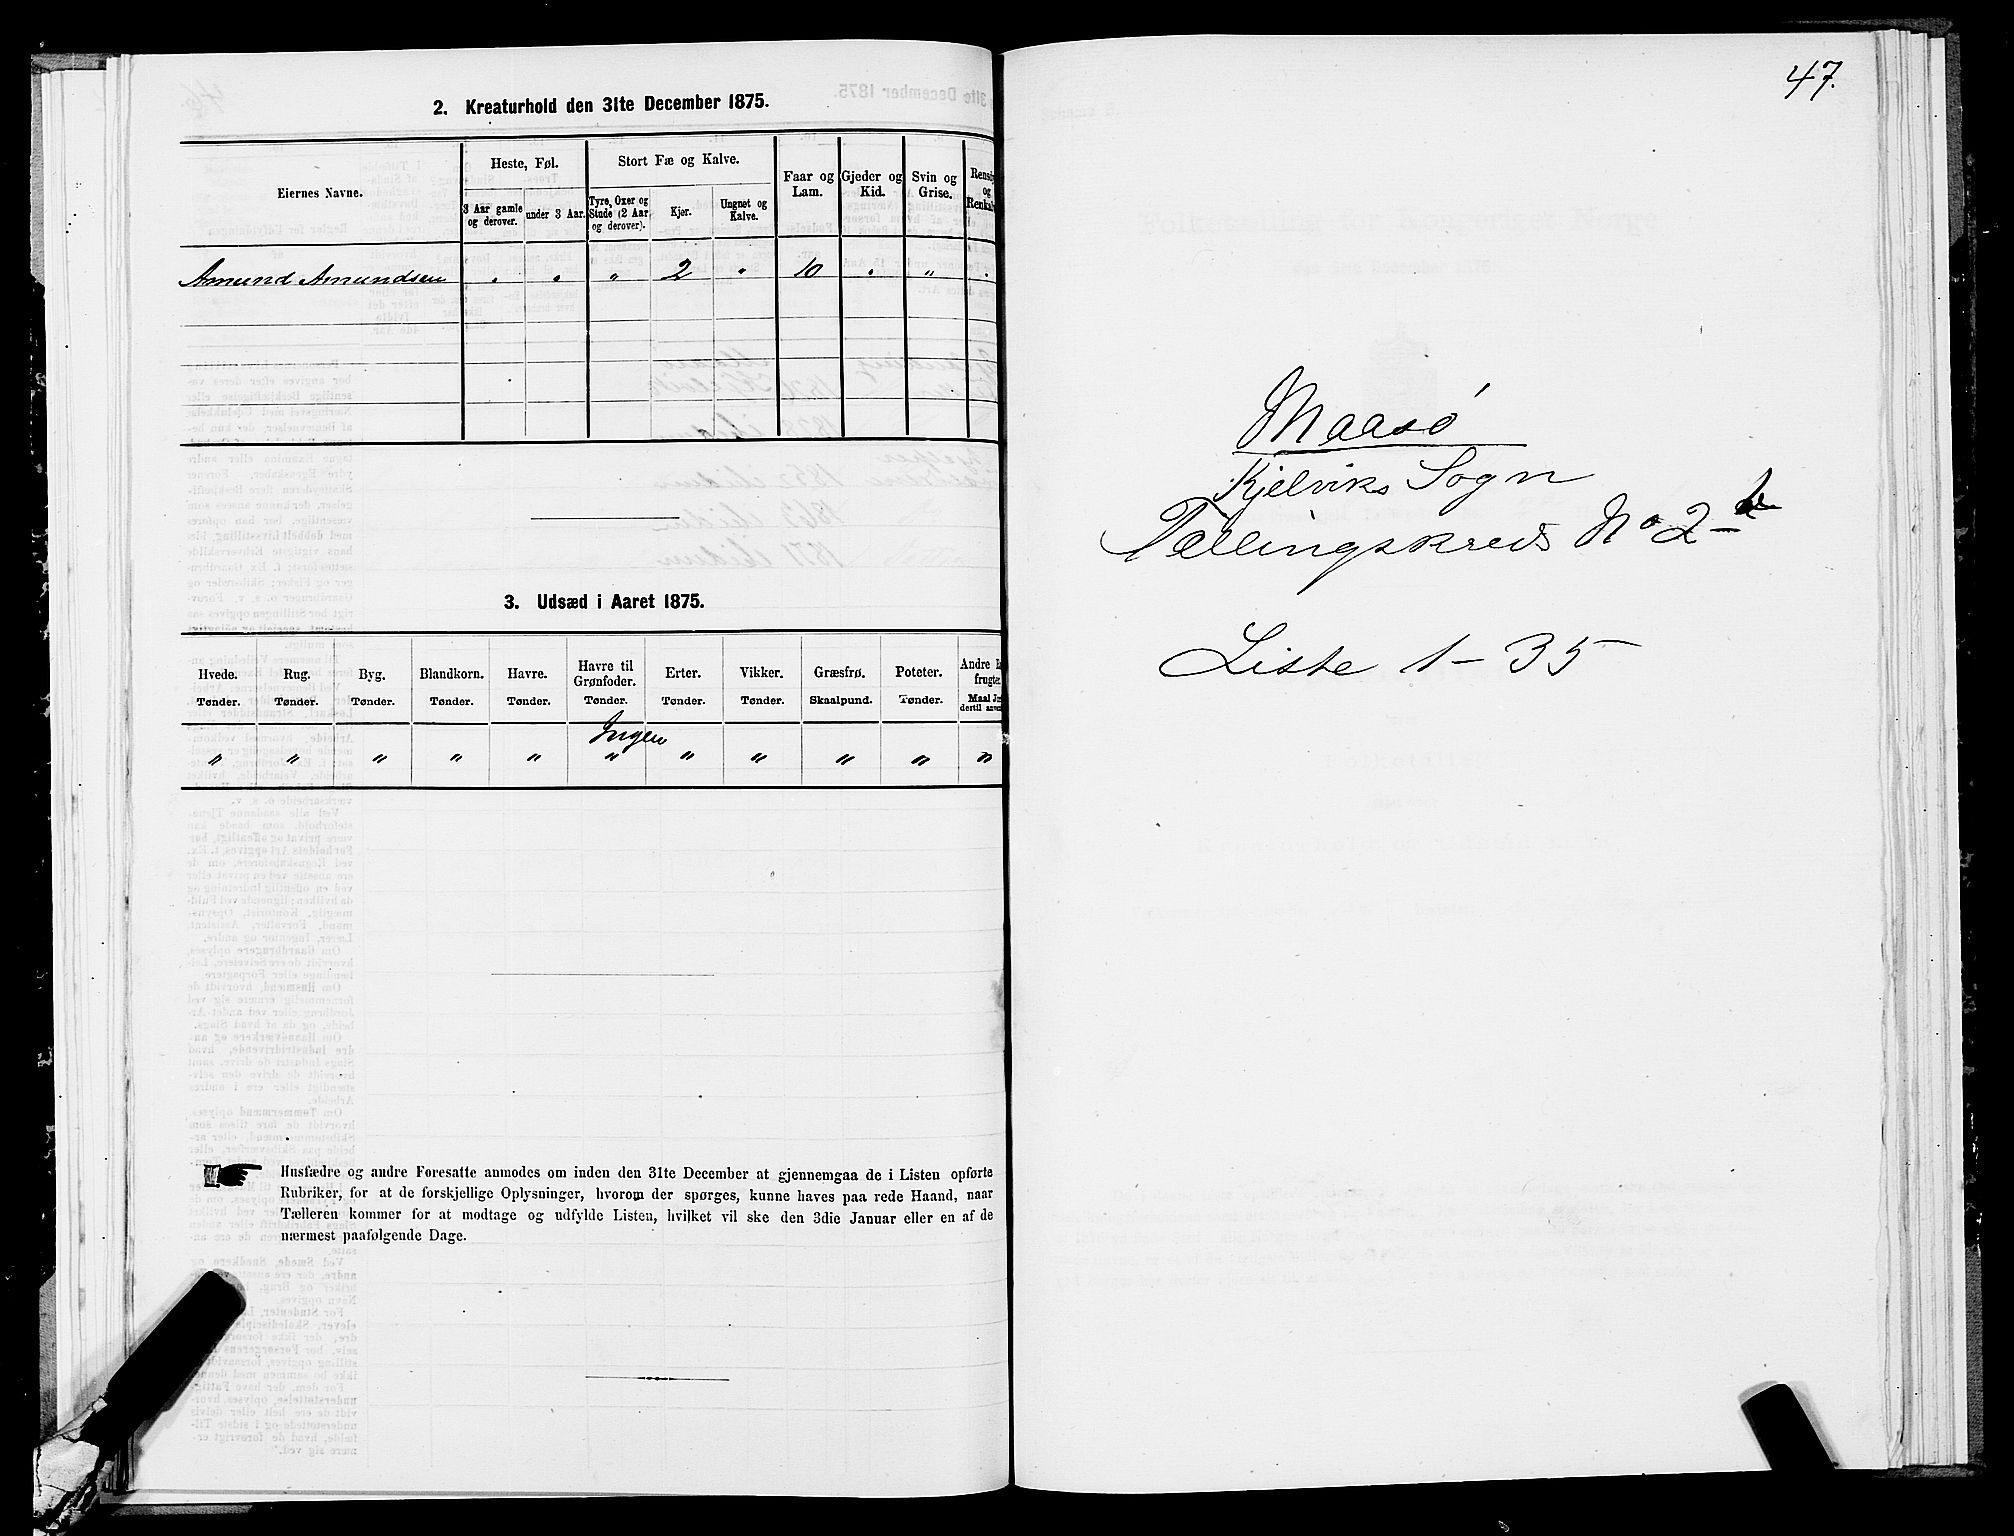 2. Kreaturhold den 31te December 1875.
Eiernes Navne.
Heste, Føl.
Stort Fæ og Kalve.
Faar og Lam.
Gjeder og Kid.
Svin og Grise.
3 Aar gamle og derover.
under 3 Aar.
Tyre, Oxer og Stude (2 Aar og derover).
Kjør.
Ungnøt og Kalve.
Amund Amundsen " " " 2 " 10 " " "
3. Udsæd i Aaret 1875.
Hvede. Rug. Byg. Blandkorn. Havre. Havre til Grønfoder. Erter. Vikker. Græsfrø. Poteter.
Tønder. Tønder. Tønder. Tønder. Tønder. Tønder. Tønder. Tønder. Skaalpund. Tønder.
Ingen
" " " " " " " " " " "
Husfædre og andre Foresatte anmodes om inden den 31te December at gjennemgaa de i Listen opførte
Rubriker, for at de forskjellige Oplysninger, hvorom der spørges, kunne haves paa rede Haand, naar
Tælleren kommer for at modtage og udfylde Listen, hvilket vil ske den 3die Januar eller en af de
nærmest paafølgende Dage.
47.
Maasø
Kjelviks Sogn
Tællingskreds No 2
Liste 1-35